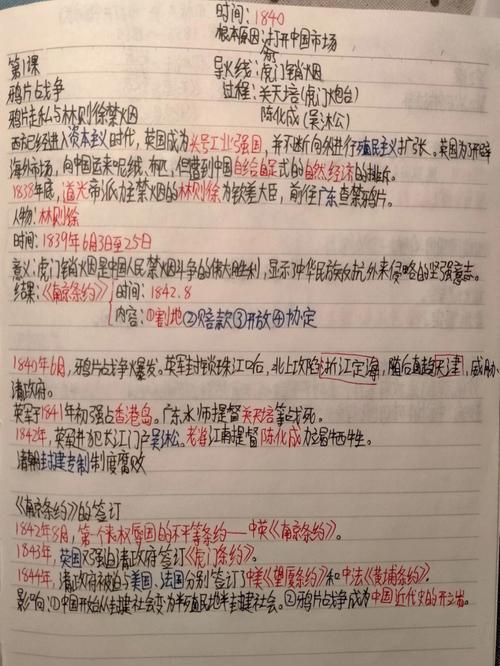 时间：1840
根本原因：打开中国市场
第1课 导火线：虎门销烟
鸦片战争 过程：关天培（虎门炮台）
鸦片走私与林则徐禁烟 陈化成（吴淞）
西方已经进入资本主义时代，英国成为头号工业强国，并不断向外进行殖民主义扩张。英国为了开辟
海外市场，向中国运来呢绒、布匹，但遭到中国自给自足式的自然经济的抵抗。
1838年底，道光帝派力主禁烟的林则徐为钦差大臣，前往广东查禁鸦片。
人物：林则徐
时间：1839年6月3日至25日
意义：虎门销烟是中国人民禁烟斗争的伟大胜利，显示了中华民族反抗外来侵略的坚强意志。
结果：《南京条约》 时间：1842.8
内容：①割地②赔款③开放④协定
1840年6月，鸦片战争爆发。英军封锁珠江口后，北上攻陷浙江定海，随后直趋天津，威胁
清政府。
英军于1841年初强占香港岛。广东水师提督关天培等战死。
1842年，英军进犯长江门户吴淞。老将江南提督陈化成力战牺牲。
清朝封建专制制度腐败
《南京条约》的签订
1842年8月，第一个丧权辱国的不平等条约——中英《南京条约》。
1843年，英国又强迫清政府签订《虎门条约》。
1844年，清政府被迫与美国、法国分别签订了中美《望厦条约》和中法《黄埔条约》。
影响：①中国开始从封建社会变为半殖民地半封建社会。②鸦片战争成为中国近代史的开端。